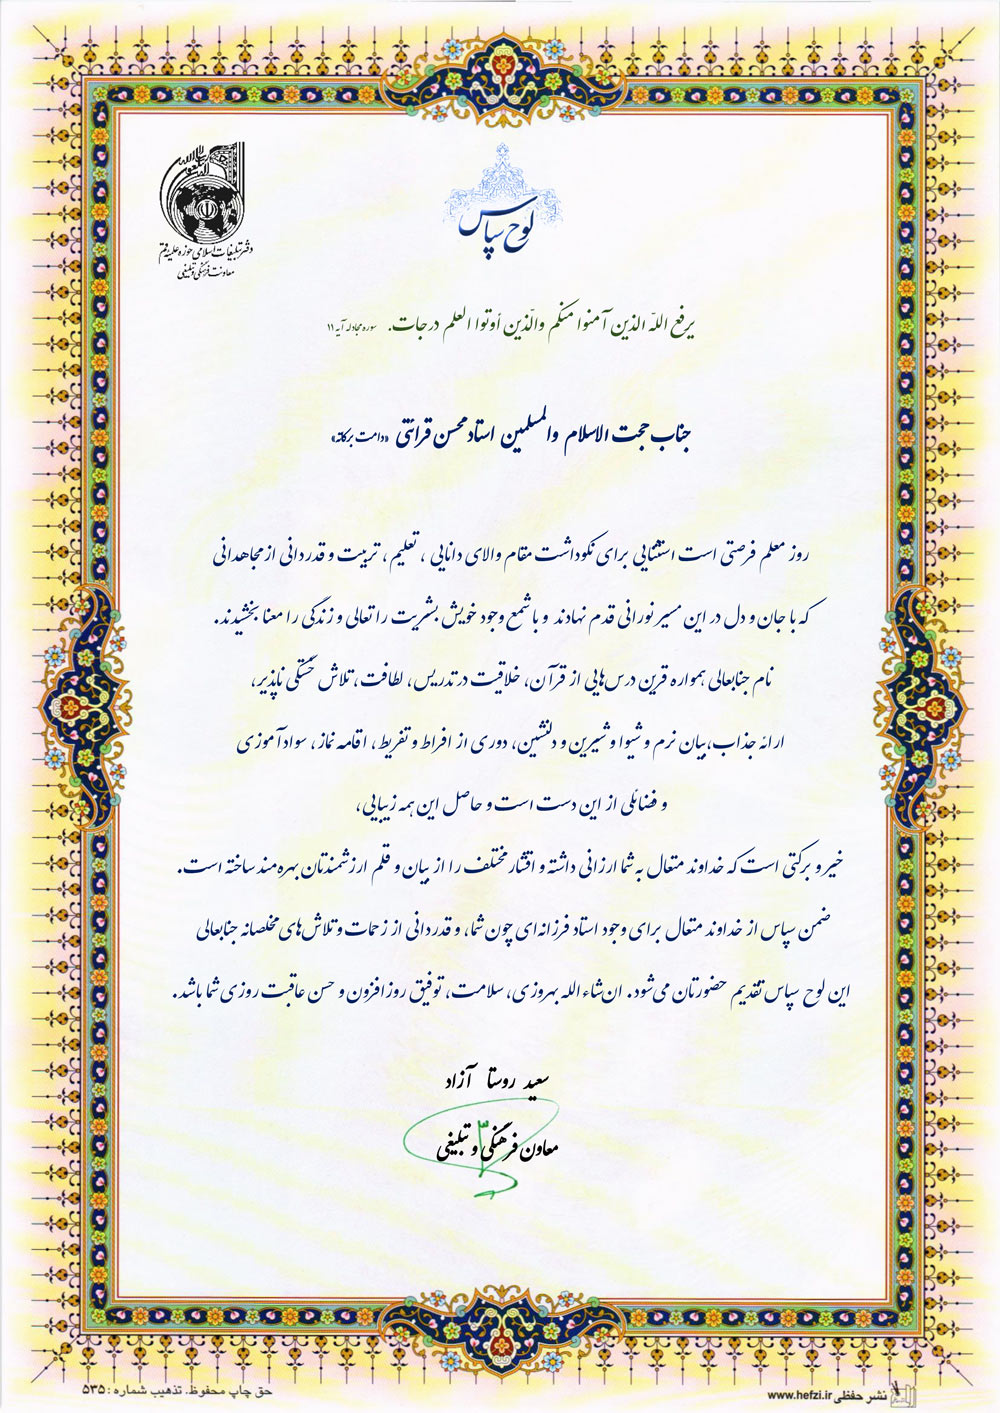 دفتر تبلیغات اسلامی حوزه علمیه قم
معاونت فرهنگی و تبلیغی
لوح سپاس
یرفع اللّه الذین آمنوا منکم والّذین أوتوا العلم درجات. سوره مجادله آیه ۱۱
جناب حجت الاسلام والمسلمین استاد محسن قرائتی «دامت برکاته»
روز معلم فرصتی است استثنایی برای نکوداشت مقام والای دانایی ، تعلیم ، تربیت و قدردانی از مجاهدانی
که با جان و دل در این مسیر نورانی قدم نهادند و با شمع وجود خویش بشریت را تعالی و زندگی را معنا بخشیدند.
نام جنابعالی همواره قرین درس‌هایی از قرآن، خلاقیت در تدریس، لطافت، تلاش خستگی ناپذیر،
ارائه جذاب، بیان نرم و شیوا و شیرین و دلنشین، دوری از افراط و تفریط، اقامه نماز، سوادآموزی
و فضائلی از این دست است و حاصل این همه زیبایی،
خیر و برکتی است که خداوند متعال به شما ارزانی داشته و اقشار مختلف را از بیان و قلم ارزشمندتان بهره‌مند ساخته است.
ضمن سپاس از خداوند متعال برای وجود استاد فرزانه‌ای چون شما، و قدردانی از زحمات و تلاش‌های مخلصانه جنابعالی
این لوح سپاس تقدیم حضورتان می‌شود. ان‌شاء الله بهروزی، سلامت، توفیق روزافزون و حسن عاقبت روزی شما باشد.
سعید روستا آزاد
معاون فرهنگی و تبلیغی
نشر حفظی www.hefzi.ir
حق چاپ محفوظ. تذهیب شماره : ۵۳۵